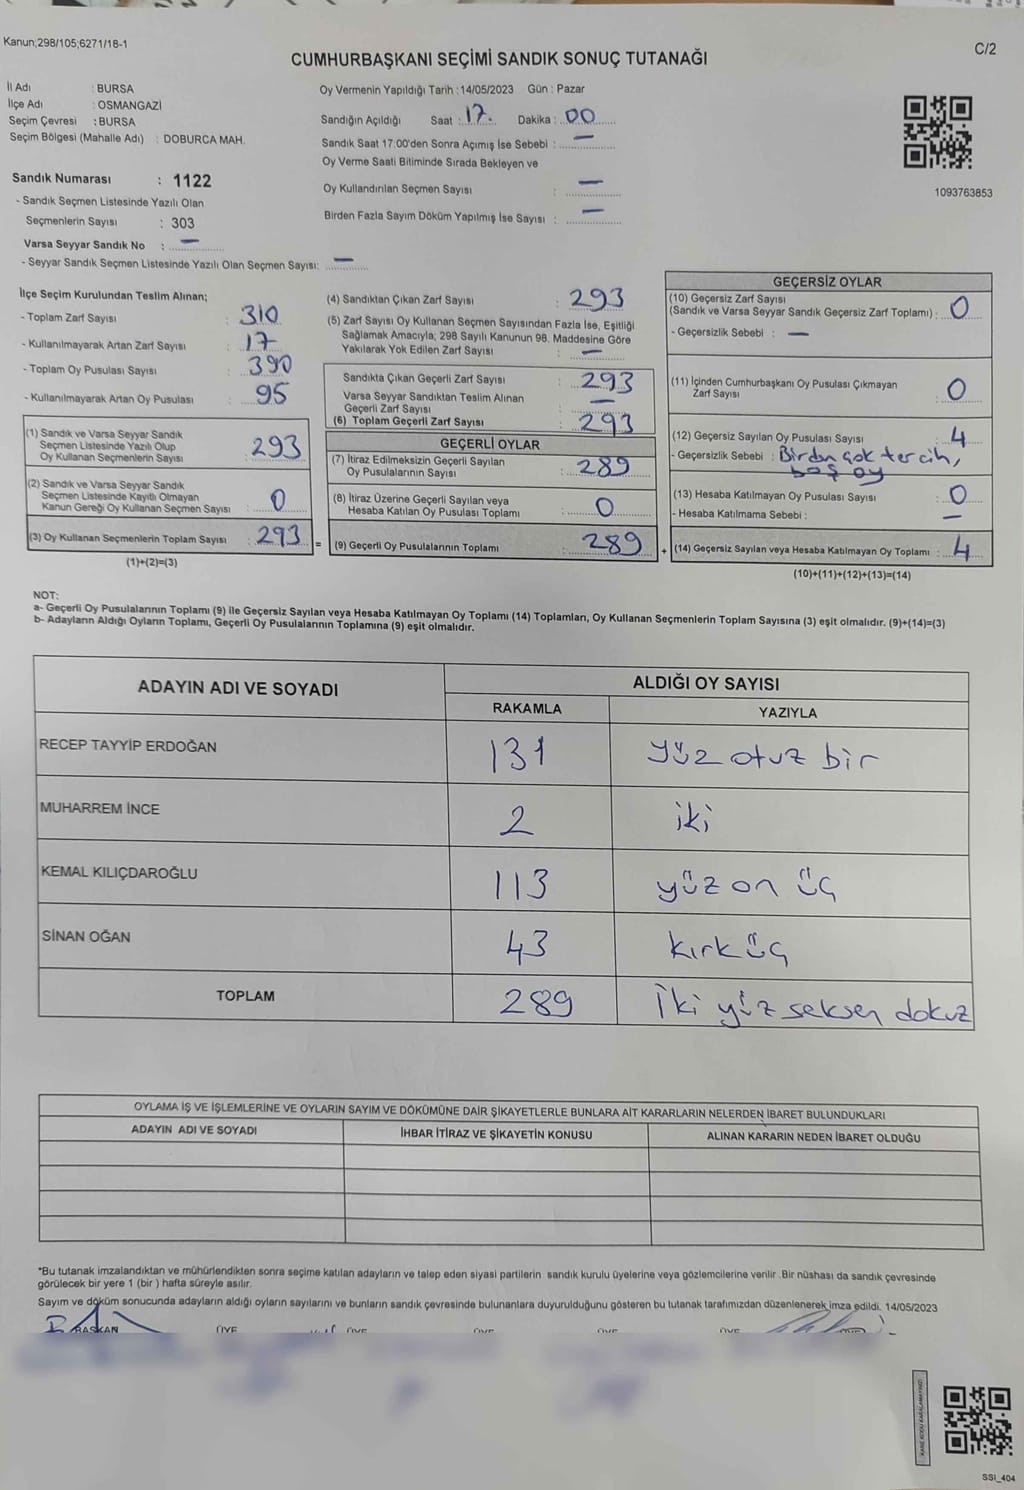 Kanun;298/105;6271/18-1
C/2
CUMHURBAŞKANI SEÇİMİ SANDIK SONUÇ TUTANAĞI
İl Adı : BURSA
İlçe Adı : OSMANGAZİ
Seçim Çevresi : BURSA
Seçim Bölgesi (Mahalle Adı) : DOBURCA MAH.
Sandık Numarası : 1122
- Sandık Seçmen Listesinde Yazılı Olan
Seçmenlerin Sayısı : 303
Varsa Seyyar Sandık No : —
- Seyyar Sandık Seçmen Listesinde Yazılı Olan Seçmen Sayısı: —
Oy Vermenin Yapıldığı Tarih : 14/05/2023 Gün : Pazar
Sandığın Açıldığı Saat : 17. Dakika : 00
Sandık Saat 17:00'den Sonra Açımış İse Sebebi : —
Oy Verme Saati Bitiminde Sırada Bekleyen ve
Oy Kullandırılan Seçmen Sayısı : —
Birden Fazla Sayım Döküm Yapılmış İse Sayısı : —
1093763853
İlçe Seçim Kurulundan Teslim Alınan;
- Toplam Zarf Sayısı : 310
- Kullanılmayarak Artan Zarf Sayısı : 17
- Toplam Oy Pusulası Sayısı : 390
- Kullanılmayarak Artan Oy Pusulası : 95
(1) Sandık ve Varsa Seyyar Sandık
Seçmen Listesinde Yazılı Olup
Oy Kullanan Seçmenlerin Sayısı : 293
(2) Sandık ve Varsa Seyyar Sandık
Seçmen Listesinde Kayıtlı Olmayan
Kanun Gereği Oy Kullanan Seçmen Sayısı : 0
(3) Oy Kullanan Seçmenlerin Toplam Sayısı : 293 =
(1)+(2)=(3)
(4) Sandıktan Çıkan Zarf Sayısı : 293
(5) Zarf Sayısı Oy Kullanan Seçmen Sayısından Fazla İse, Eşitliği
Sağlamak Amacıyla; 298 Sayılı Kanunun 98. Maddesine Göre
Yakılarak Yok Edilen Zarf Sayısı : —
Sandıkta Çıkan Geçerli Zarf Sayısı : 293
Varsa Seyyar Sandıktan Teslim Alınan
Geçerli Zarf Sayısı : —
(6) Toplam Geçerli Zarf Sayısı : 293
GEÇERLİ OYLAR
(7) İtiraz Edilmeksizin Geçerli Sayılan
Oy Pusulalarının Sayısı : 289
(8) İtiraz Üzerine Geçerli Sayılan veya
Hesaba Katılan Oy Pusulası Toplamı : 0
(9) Geçerli Oy Pusulalarının Toplamı : 289 +
GEÇERSİZ OYLAR
(10) Geçersiz Zarf Sayısı
(Sandık ve Varsa Seyyar Sandık Geçersiz Zarf Toplamı) : 0
- Geçersizlik Sebebi : —
(11) İçinden Cumhurbaşkanı Oy Pusulası Çıkmayan
Zarf Sayısı : 0
(12) Geçersiz Sayılan Oy Pusulası Sayısı : 4
- Geçersizlik Sebebi : Birden çok tercih,
boş oy
(13) Hesaba Katılmayan Oy Pusulası Sayısı : 0
- Hesaba Katılmama Sebebi : —
(14) Geçersiz Sayılan veya Hesaba Katılmayan Oy Toplamı : 4
(10)+(11)+(12)+(13)=(14)
NOT:
a- Geçerli Oy Pusulalarının Toplamı (9) ile Geçersiz Sayılan veya Hesaba Katılmayan Oy Toplamı (14) Toplamları, Oy Kullanan Seçmenlerin Toplam Sayısına (3) eşit olmalıdır. (9)+(14)=(3)
b- Adayların Aldığı Oyların Toplamı, Geçerli Oy Pusulalarının Toplamına (9) eşit olmalıdır.
ADAYIN ADI VE SOYADI
ALDIĞI OY SAYISI
RAKAMLA YAZIYLA
RECEP TAYYİP ERDOĞAN 131 yüz otuz bir
MUHARREM İNCE 2 iki
KEMAL KILIÇDAROĞLU 113 yüz on üç
SİNAN OĞAN 43 kırk üç
TOPLAM 289 İki yüz seksen dokuz
OYLAMA İŞ VE İŞLEMLERİNE VE OYLARIN SAYIM VE DÖKÜMÜNE DAİR ŞİKAYETLERLE BUNLARA AİT KARARLARIN NELERDEN İBARET BULUNDUKLARI
ADAYIN ADI VE SOYADI İHBAR İTİRAZ VE ŞİKAYETİN KONUSU ALINAN KARARIN NEDEN İBARET OLDUĞU
*Bu tutanak imzalandıktan ve mühürlendikten sonra seçime katılan adayların ve talep eden siyasi partilerin sandık kurulu üyelerine veya gözlemcilerine verilir .Bir nüshası da sandık çevresinde
görülecek bir yere 1 (bir ) hafta süreyle asılır.
Sayım ve döküm sonucunda adayların aldığı oyların sayılarını ve bunların sandık çevresinde bulunanlara duyurulduğunu gösteren bu tutanak tarafımızdan düzenlenerek imza edildi. 14/05/2023
BAŞKAN ÜYE ÜYE ÜYE ÜYE ÜYE ÜYE
KARE KODU KARALAMAYINIZ!
SSI_404